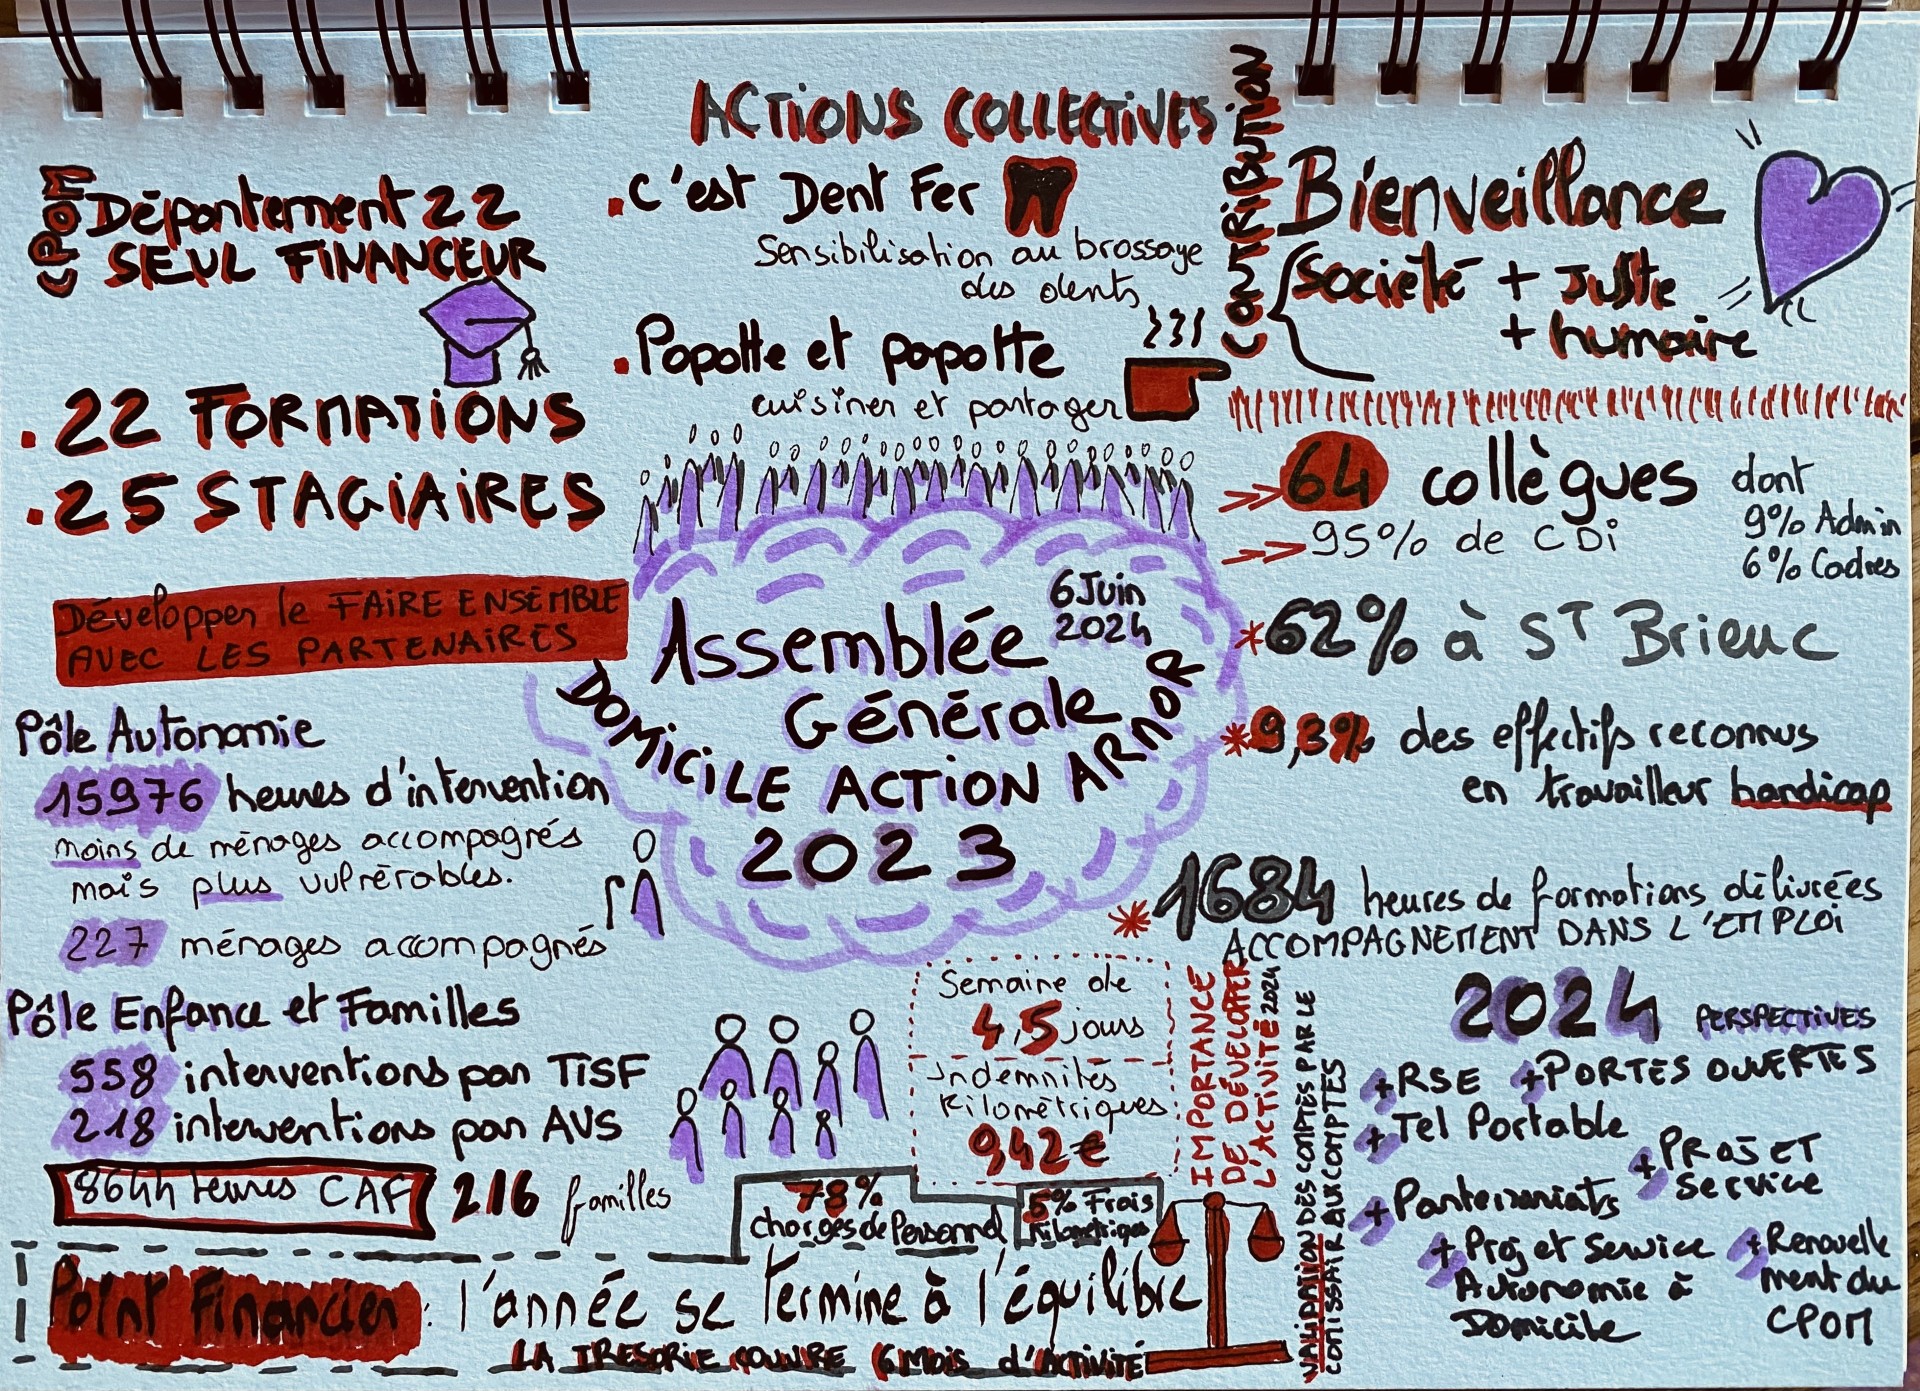 ACTIONS COLLECTIVES
CPOM
Département 22
SEUL FINANCEUR
. C'est Dent Fer
Sensibilisation au brossage
des dents
. Popotte et popotte
cuisiner et partager
CONTRIBUTION
Bienveillance
Société + Juste
+ humaire
. 22 FORMATIONS
. 25 STAGIAIRES
Développer le FAIRE ENSEMBLE
AVEC LES PARTENAIRES
64 collègues dont
9% Admin
6% Cadres
95% de CDi
* 62% à ST Brieuc
* 9,3% des effectifs reconnus
en travailleur handicap
* 1684 heures de formations délivrées
ACCOMPAGNEMENT DANS L'EMPLOI
6 Juin
2024
Assemblée
Générale
DOMICILE ACTION ARMOR
2023
Pôle Autonomie
15976 heures d'intervention
moins de ménages accompagnés
mais plus vulnérables.
227 ménages accompagnés
Pôle Enfance et Familles
558 interventions par TiSF
218 interventions par AVS
8644 heures CAF 216 familles
Semaine de
4,5 jours
Indemnités
Kilométriques
942€
IMPORTANCE
DE DÉVELOPPER
L'ACTIVITÉ 2024
78%
charges de Personnel
5% Frais
Kilométriques
Point Financier : l'année se termine à l'équilibre
LA TRESORIE COUVRE 6 MOIS d'ACTIVITÉ
VALIDATION DES COMPTES PAR LE
COMISSAIR AUX COMPTES
2024 PERSPECTIVES
+ RSE + PORTES OUVERTES
+ Tel Portable
+ PROJET
service
+ Partenariats
+ Projet service
Autonomie à
Domicile
+ Renouvelle
ment du
CPOM